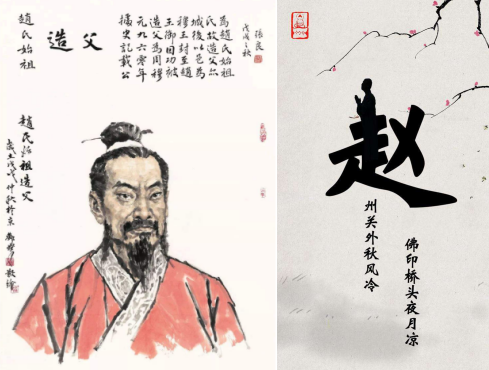 趙氏始祖
造父
據史記載公
元九六零年
造父為周穆
王御因功被
穆王封至趙
城後以邑為
氏故造父
為趙氏始祖
戊戌之秋
趙氏始祖造父
仲秋於京
赵
州关外秋风冷
佛印桥头夜月凉